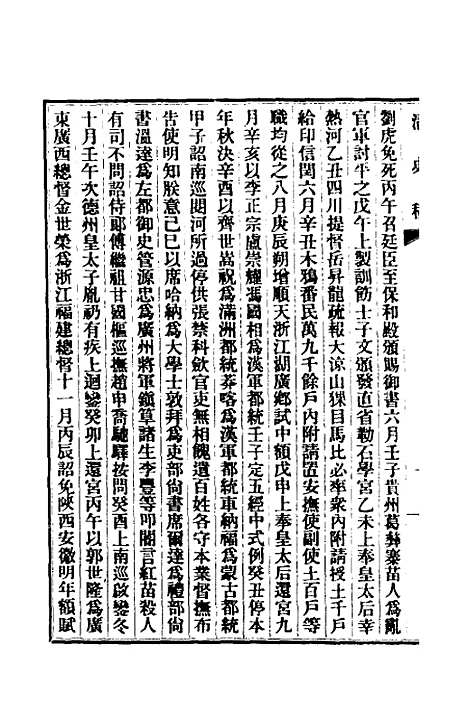 清史稿
劉虎免死丙午召廷臣至保和殿頒賜御書六月壬子貴州葛彝寨苗人爲亂
官軍討平之戊午上製訓飭士子文頒發直省勒石學宮乙未上奉皇太后幸
熱河乙丑四川提督岳昇龍疏報大涼山猓目馬比必率衆內附請授土千戶
給印信閏六月辛丑木鴉番民萬九千餘戶內附請置安撫使副使土百戶等
職均從之八月庚辰朔增順天浙江湖廣鄉試中額戊申上奉皇太后還宮九
月辛亥以李正宗盧崇耀馮國相爲漢軍都統壬子定五經中式例癸丑停本
年秋決辛酉以齊世嵩祝爲滿洲都統莽喀爲漢軍都統車納福爲蒙古都統
甲子詔南巡閱河所過停供張禁科歛官吏無相餽遺百姓各守本業督撫布
告使明知朕意己巳以席哈納爲大學士敦拜爲吏部尚書席爾達爲禮部尚
書溫達爲左都御史管源忠爲廣州將軍鎭筸諸生李豐等叩閽言紅苗殺人
有司不問詔侍郎傅繼祖甘國樞巡撫趙申喬馳驛按問癸酉上南巡啟鑾冬
十月壬午次德州皇太子胤礽有疾上迴鑾癸卯上還宮丙午以郭世隆爲廣
東廣西總督金世榮爲浙江福建總督十一月丙辰詔免陝西安徽明年額賦